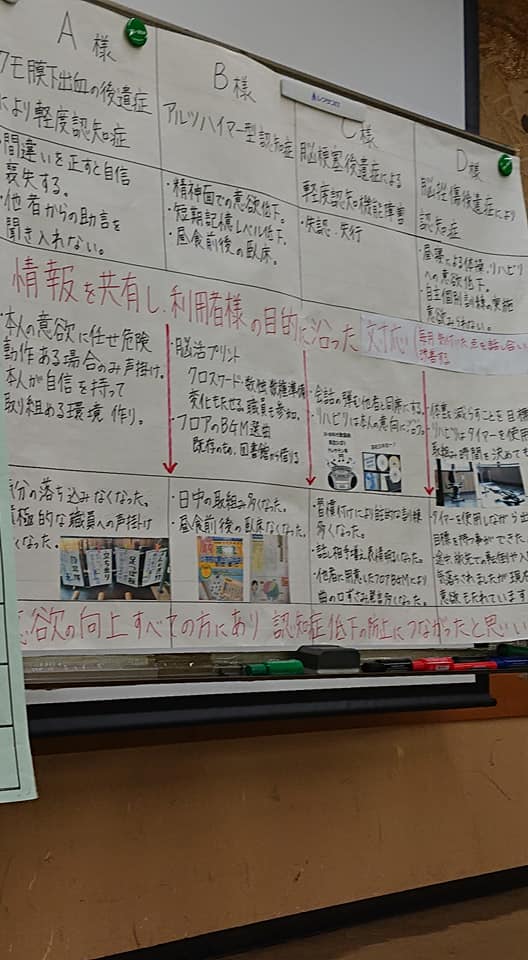 A 様
クモ膜下出血の後遺症
により軽度認知症
間違いを正すと自信
喪失する。
他者からの助言を
聞き入れない。
B 様
アルツハイマー型認知症
・精神面での意欲低下。
・短期記憶レベル低下。
・昼食前後の臥床。
C 様
脳梗塞後遺症による
軽度認知機能障害
・失認・失行
D 様
脳挫傷後遺症により
認知症
・昼寝による体操、リハビリ
への意欲低下。
・自主個別訓練の実施
意欲みられない。
情報を共有し、利用者様の目的に沿った対応
毎月気付いた点を話し合い
改善する
本人の意欲に任せ危険
動作ある場合のみ声掛け。
本人が自信を持って
取り組める環境作り。
・脳活プリント
クロスワード・数独数種準備
変化もたせる。職員も参加。
・フロアのBGM選曲
既存のもの、図書館から借りる
・会話の弾む他者と同席にする。
・リハビリは本人の意向に沿う。
減らすことを目標
・リハビリはタイマーを使用
取組み時間を決めても
気分の落ち込みなくなった。
積極的な職員への声掛け
くなった。
立ち上り
・日中の取組み多くなった。
・昼食前後の臥床なくなった。
・習慣付けにより自発的な訓練
多くなった。
・話し相手増え表情明るくなった。
・他者に用意したフロアBGMにより
曲の口ずさみ鼻歌多くなった。
タイマーを使用しながら
目標を持つ事ができた。
意欲もたれています
意欲の向上すべての方にあり 認知症低下の防止につながったと思い